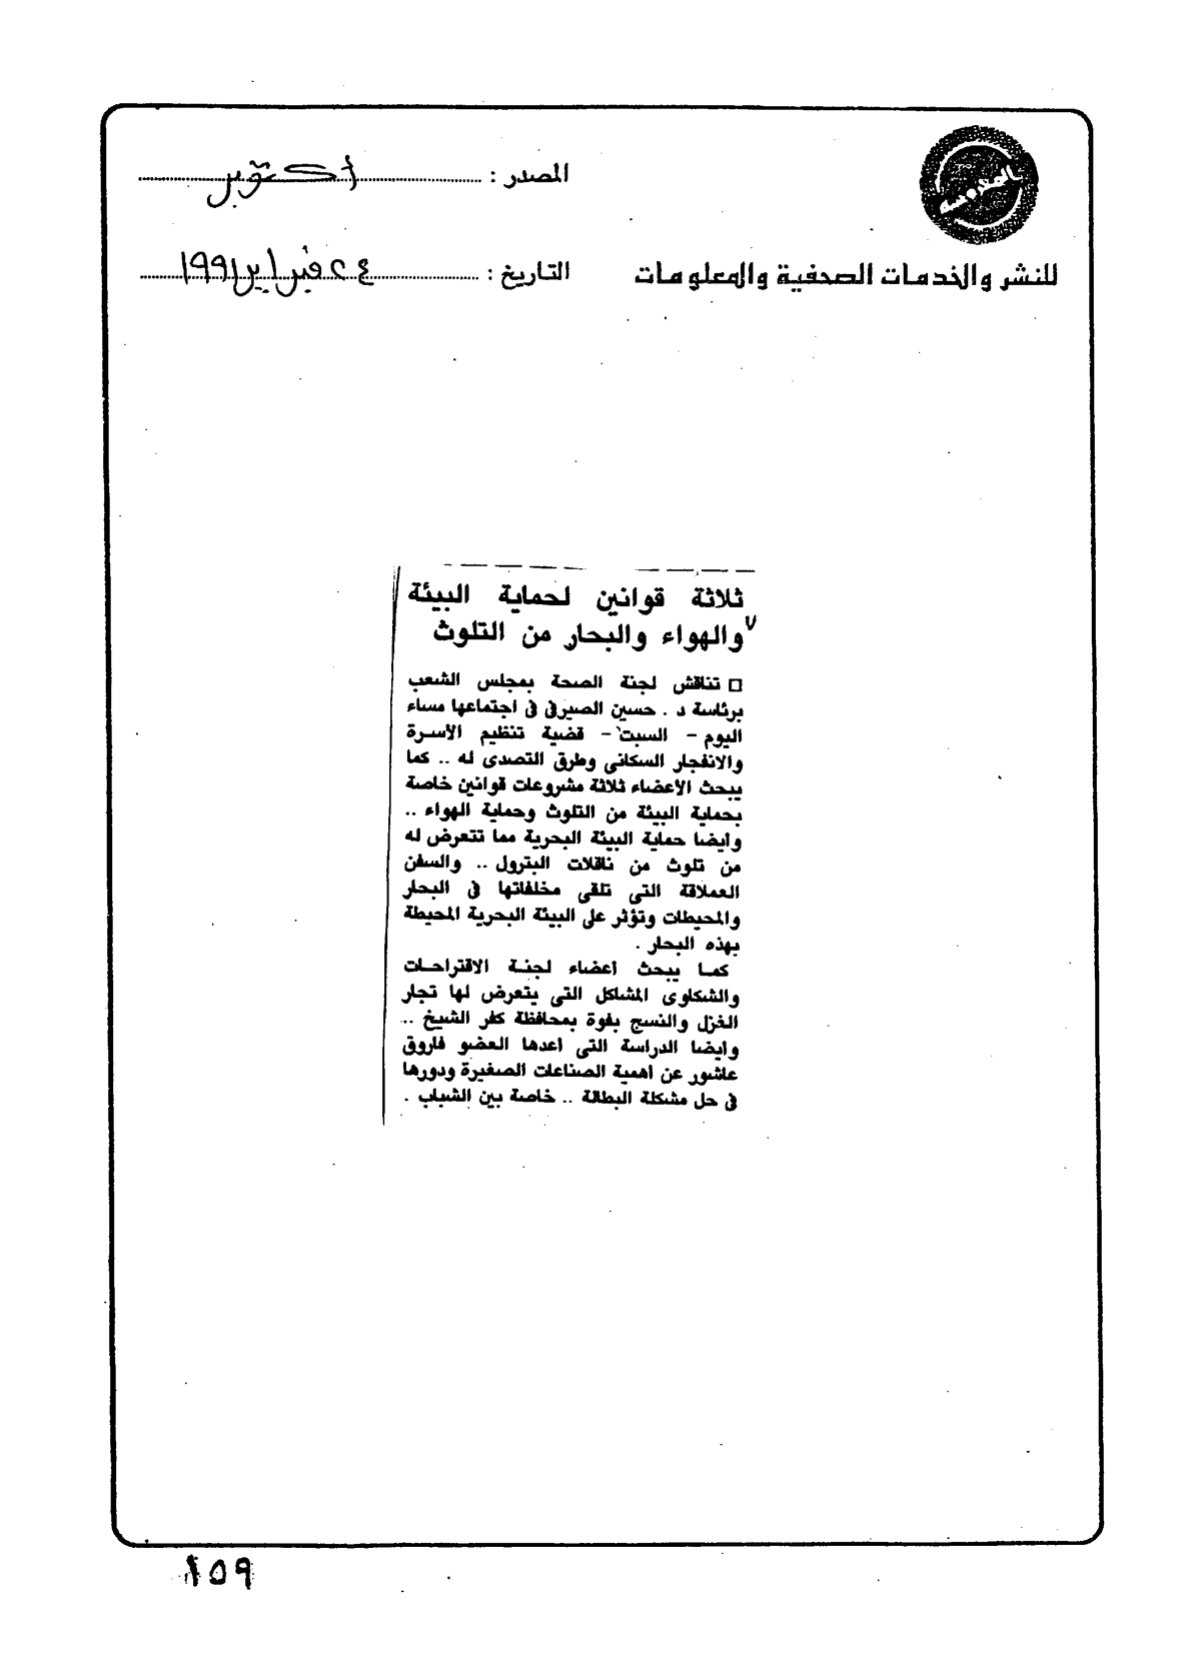 المصدر : أكتوبر
للنشر والخدمات الصحفية والمعلومات
التاريخ : ٢٤ فبراير ١٩٩١
ثلاثة قوانين لحماية البيئة
والهواء والبحار من التلوث
□ تناقش لجنة الصحة بمجلس الشعب
برئاسة د . حسين الصيرفى فى اجتماعها مساء
اليوم - السبت - قضية تنظيم الأسرة
والانفجار السكانى وطرق التصدى له .. كما
يبحث الأعضاء ثلاثة مشروعات قوانين خاصة
بحماية البيئة من التلوث وحماية الهواء ..
وايضا حماية البيئة البحرية مما تتعرض له
من تلوث من ناقلات البترول .. والسفن
العملاقة التى تلقى مخلفاتها فى البحار
والمحيطات وتؤثر على البيئة البحرية المحيطة
بهذه البحار .
كما يبحث اعضاء لجنة الاقتراحات
والشكاوى المشاكل التى يتعرض لها تجار
الغزل والنسج بفوة بمحافظة كفر الشيخ ..
وايضا الدراسة التى اعدها العضو فاروق
عاشور عن اهمية الصناعات الصغيرة ودورها
فى حل مشكلة البطالة .. خاصة بين الشباب .
١٥٩